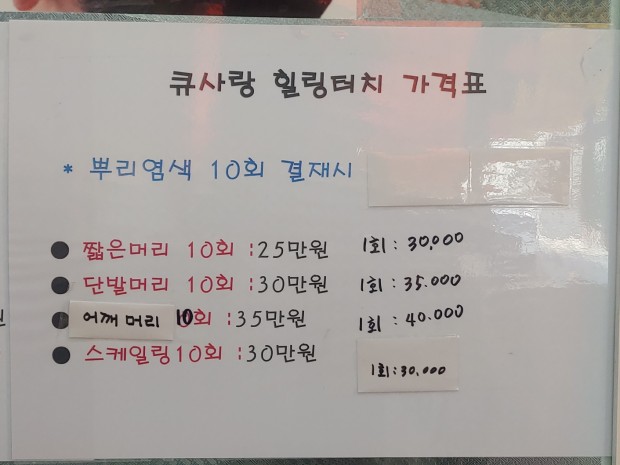 큐사랑 힐링터치 가격표
* 뿌리염색 10회 결재시
● 짧은머리 10회 :25만원 1회 : 30,000
● 단발머리 10회 :30만원 1회 : 35.000
● 어깨 머리 10회 :35만원 1회 : 40.000
● 스케일링10회 :30만원 1회 : 30.000